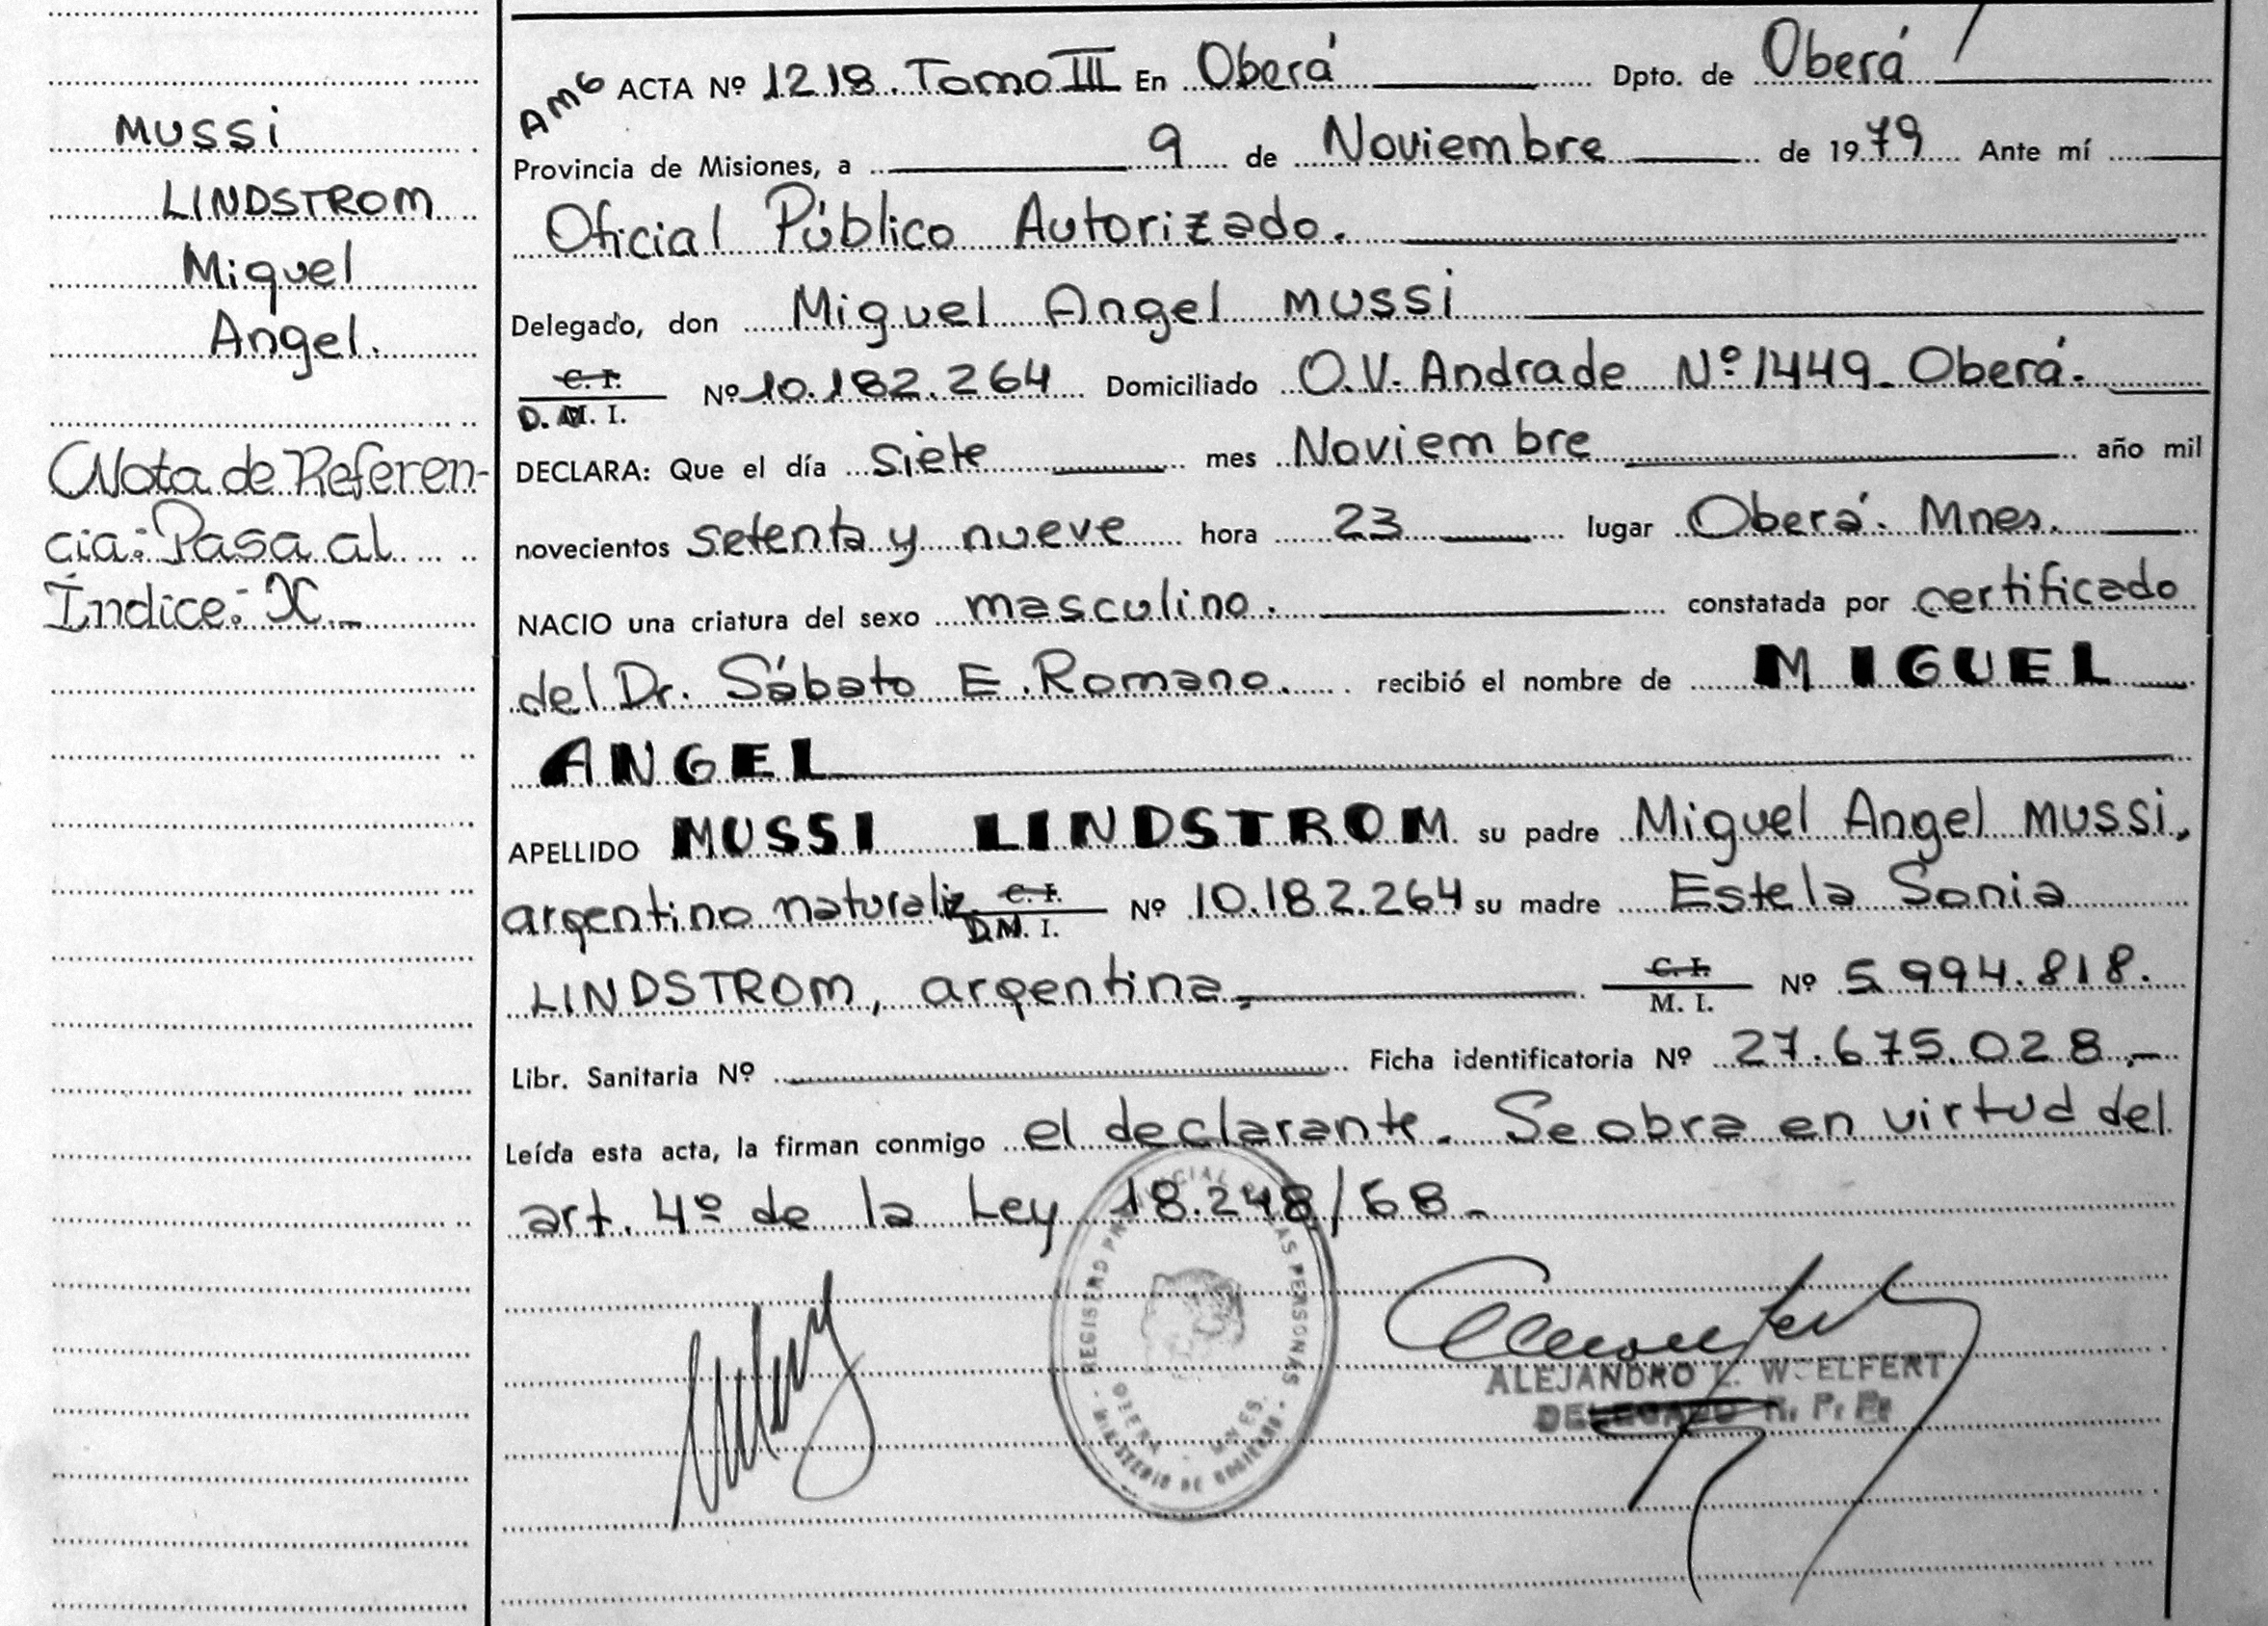 MUSSI
LINDSTROM
Miguel
Angel.
Nota de Referen-
cia: Pasa al
Índice: X._
AMG ACTA Nº 1218. Tomo III En Oberá Dpto. de Oberá
Provincia de Misiones, a 9 de Noviembre de 1979 Ante mí
Oficial Público Autorizado.
Delegado, don Miguel Angel MUSSI
C. I.
D. M. I. Nº 10.182.264 Domiciliado O.V. Andrade Nº 1449_ Oberá.
DECLARA: Que el día siete mes Noviembre año mil
novecientos setenta y nueve hora 23 lugar Oberá. Mnes.
NACIO una criatura del sexo masculino. constatada por certificado
del Dr. Sábato E. Romano. recibió el nombre de MIGUEL
ANGEL
APELLIDO MUSSI LINDSTROM su padre Miguel Angel MUSSI,
argentino naturaliz. C. I.
D.M. I. Nº 10.182.264 su madre Estela Sonia
LINDSTROM, argentina, C. I.
M. I. Nº 5.994.818.
Libr. Sanitaria Nº Ficha identificatoria Nº 27.675.028.-
Leída esta acta, la firman conmigo el declarante. Se obra en virtud del
art. 4º de la Ley 18.248/68-
REGISTRO PROVINCIAL DE LAS PERSONAS
OBERA - MNES.
MINISTERIO DE GOBIERNO
ALEJANDRO L. WOELFERT
DELEGADO R. P. P.